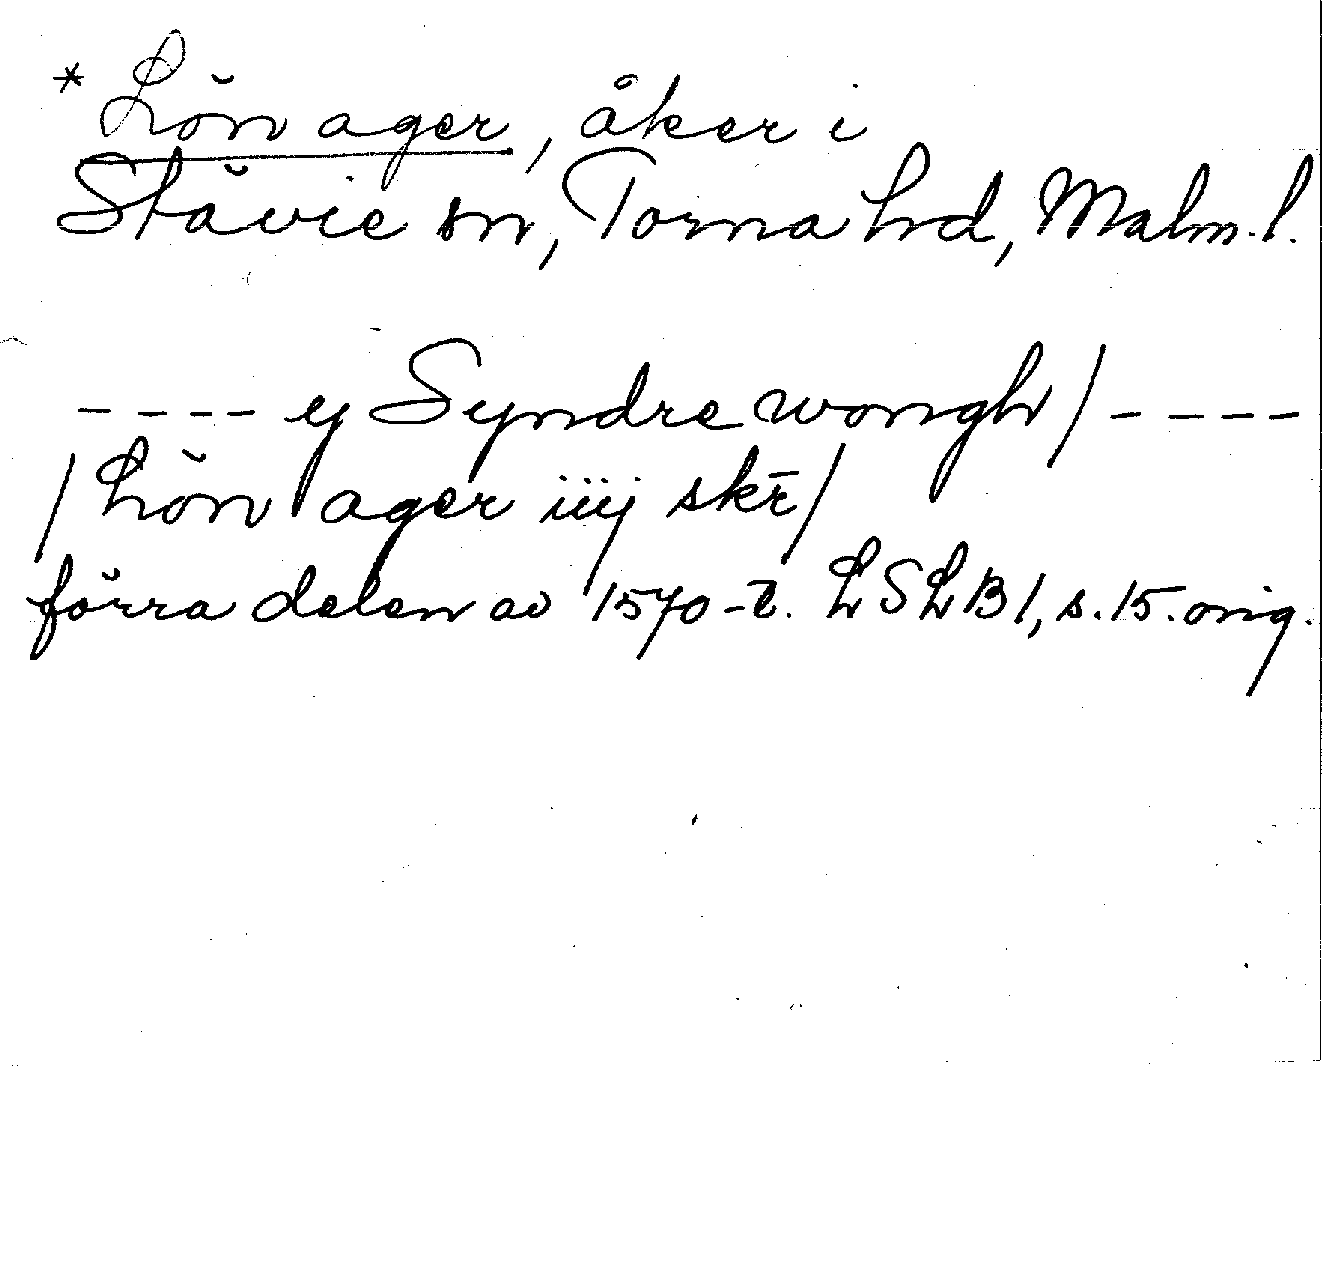 * Lön ager, åker i
Stävie sn, Torna hd, Malm. l.
---- ej Syndre wongh/----
/Lön ager iiij skr̄/
förra delen av 1570-t. LSLB 1, s. 15. orig.